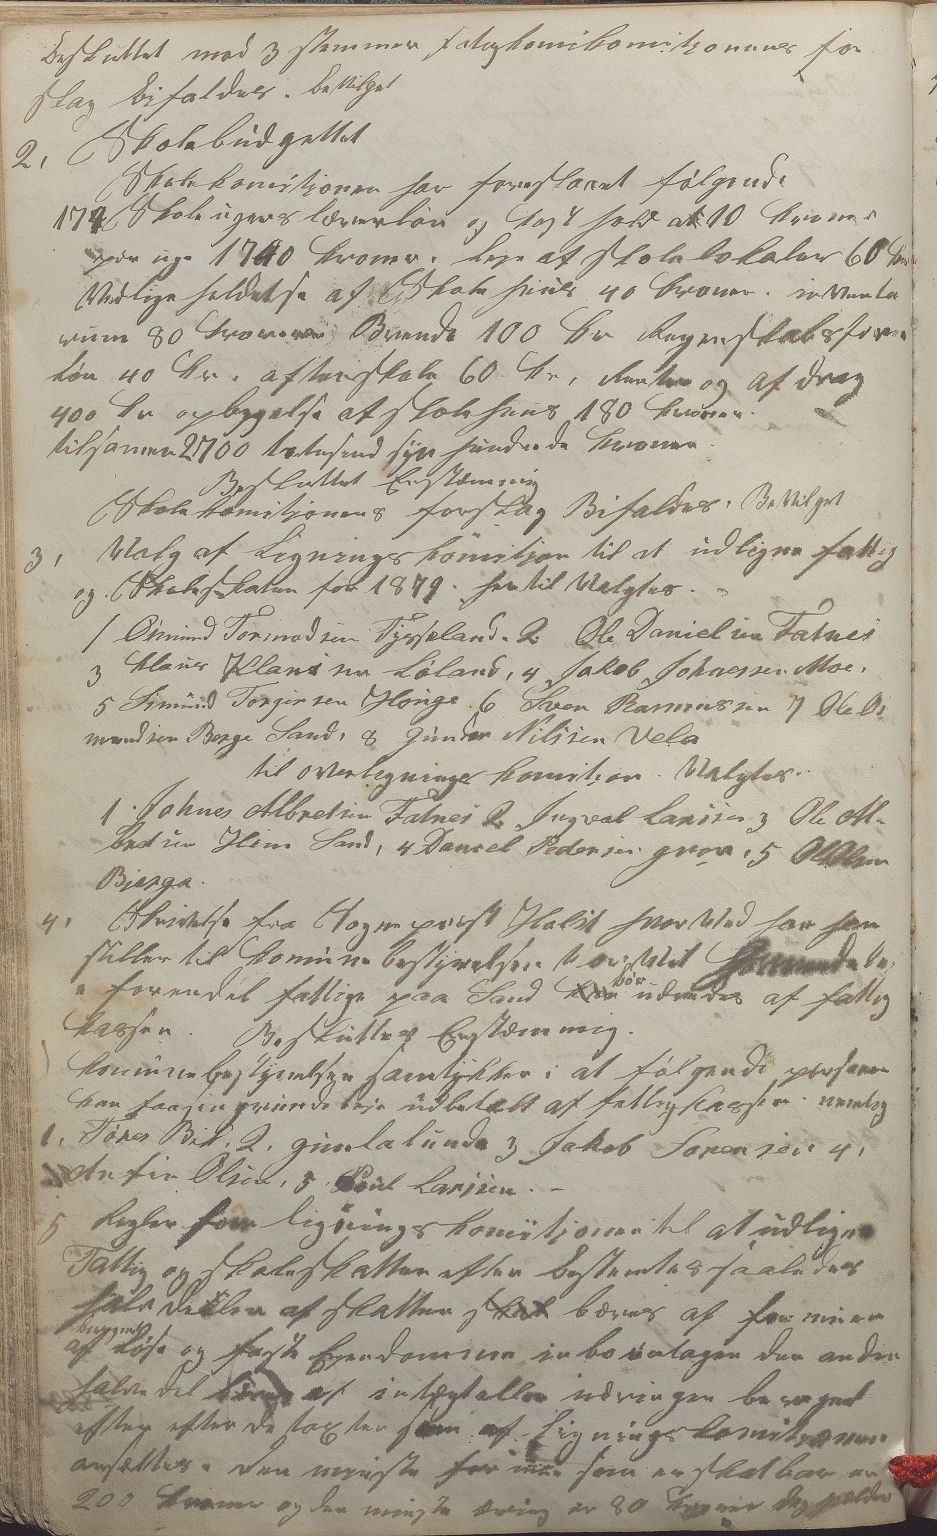 Besluttet med 3 stemmer fatigkomikomitjonens for
slag bifaldes. bevilget
2, Skolebudgettet
Skolekomitjonen har foreslaaet følgende
174 Skoleugers lærerløn og kost hold at 10 kroner
per uge 1740 kroner. leje af skolelokaler 60 kro
Vedligeholdelse af Skole huus 40 kroner. inventa
rium 80 kroner Brende 100 kr Regneskabsfører
løn 40 kr. aftenskole 60 kr, Renter og afdrag
400 kr opbygelse af skolehuus 180 kroner.
tilsamen 2700 totusend syv hundrede kroner.
Besluttet Enstæmmig
Skolekomitjonens forslag Bifaldes. Bevilget
3, Valg af Lignings komitjon til at udligne fattig
og Skoleskatten for 1879. hertil Valgtes.
1 Osmund Tormodsen Tysseland. 2 Ole Danielsen Fatnes
3 Klaus Klausen Løland, 4 Jakob Johnessen Moe,
5 Simund Torgersen Houge. 6 Sven Rasmussen 7 Ole Os
mundsen Berge Sand, 8 Gunder Nilsen Vela
til overlignings komitjon. Valgtes.
1 Johnes Albretsen Fatnes 2 Ingval Larssen 3 Ole Al
bretsen Hiim Sand, 4 Daniel Pedersen grov, 5 Ole Olsen
Bjerga.
4, Skrivelse fra Sogneprest Holst hvorved han hen
stiller til Komunebestyrelsen hvorvidt
forendel fattige paa Sand bør udredes af fattig
kassen. Besluttes Enstæmmig.
Komunebestyrelsen samtykker i at følgende personer
kan faa sin grundleje udbetalt af fattigkassen. nemlig
1, Tøres 2, gurilalunde 3 Jakob Sørensen 4,
Anfin Olsen, 5 Poul Larssen. –
5 Regler for ligningskomitjonen til at udligne
Fattig og skoleskatten efter bestemtes saaledes
halvdelen af skatten skal bæres af formuen
af Løse og faste Eyendomme den anden
halve del af intægt eller næringen beregnet
efter de taxter som af ligningskomitjonen
ansættes. den minste formue som er skatbar er
200 kroner og den minste er 80 kroner